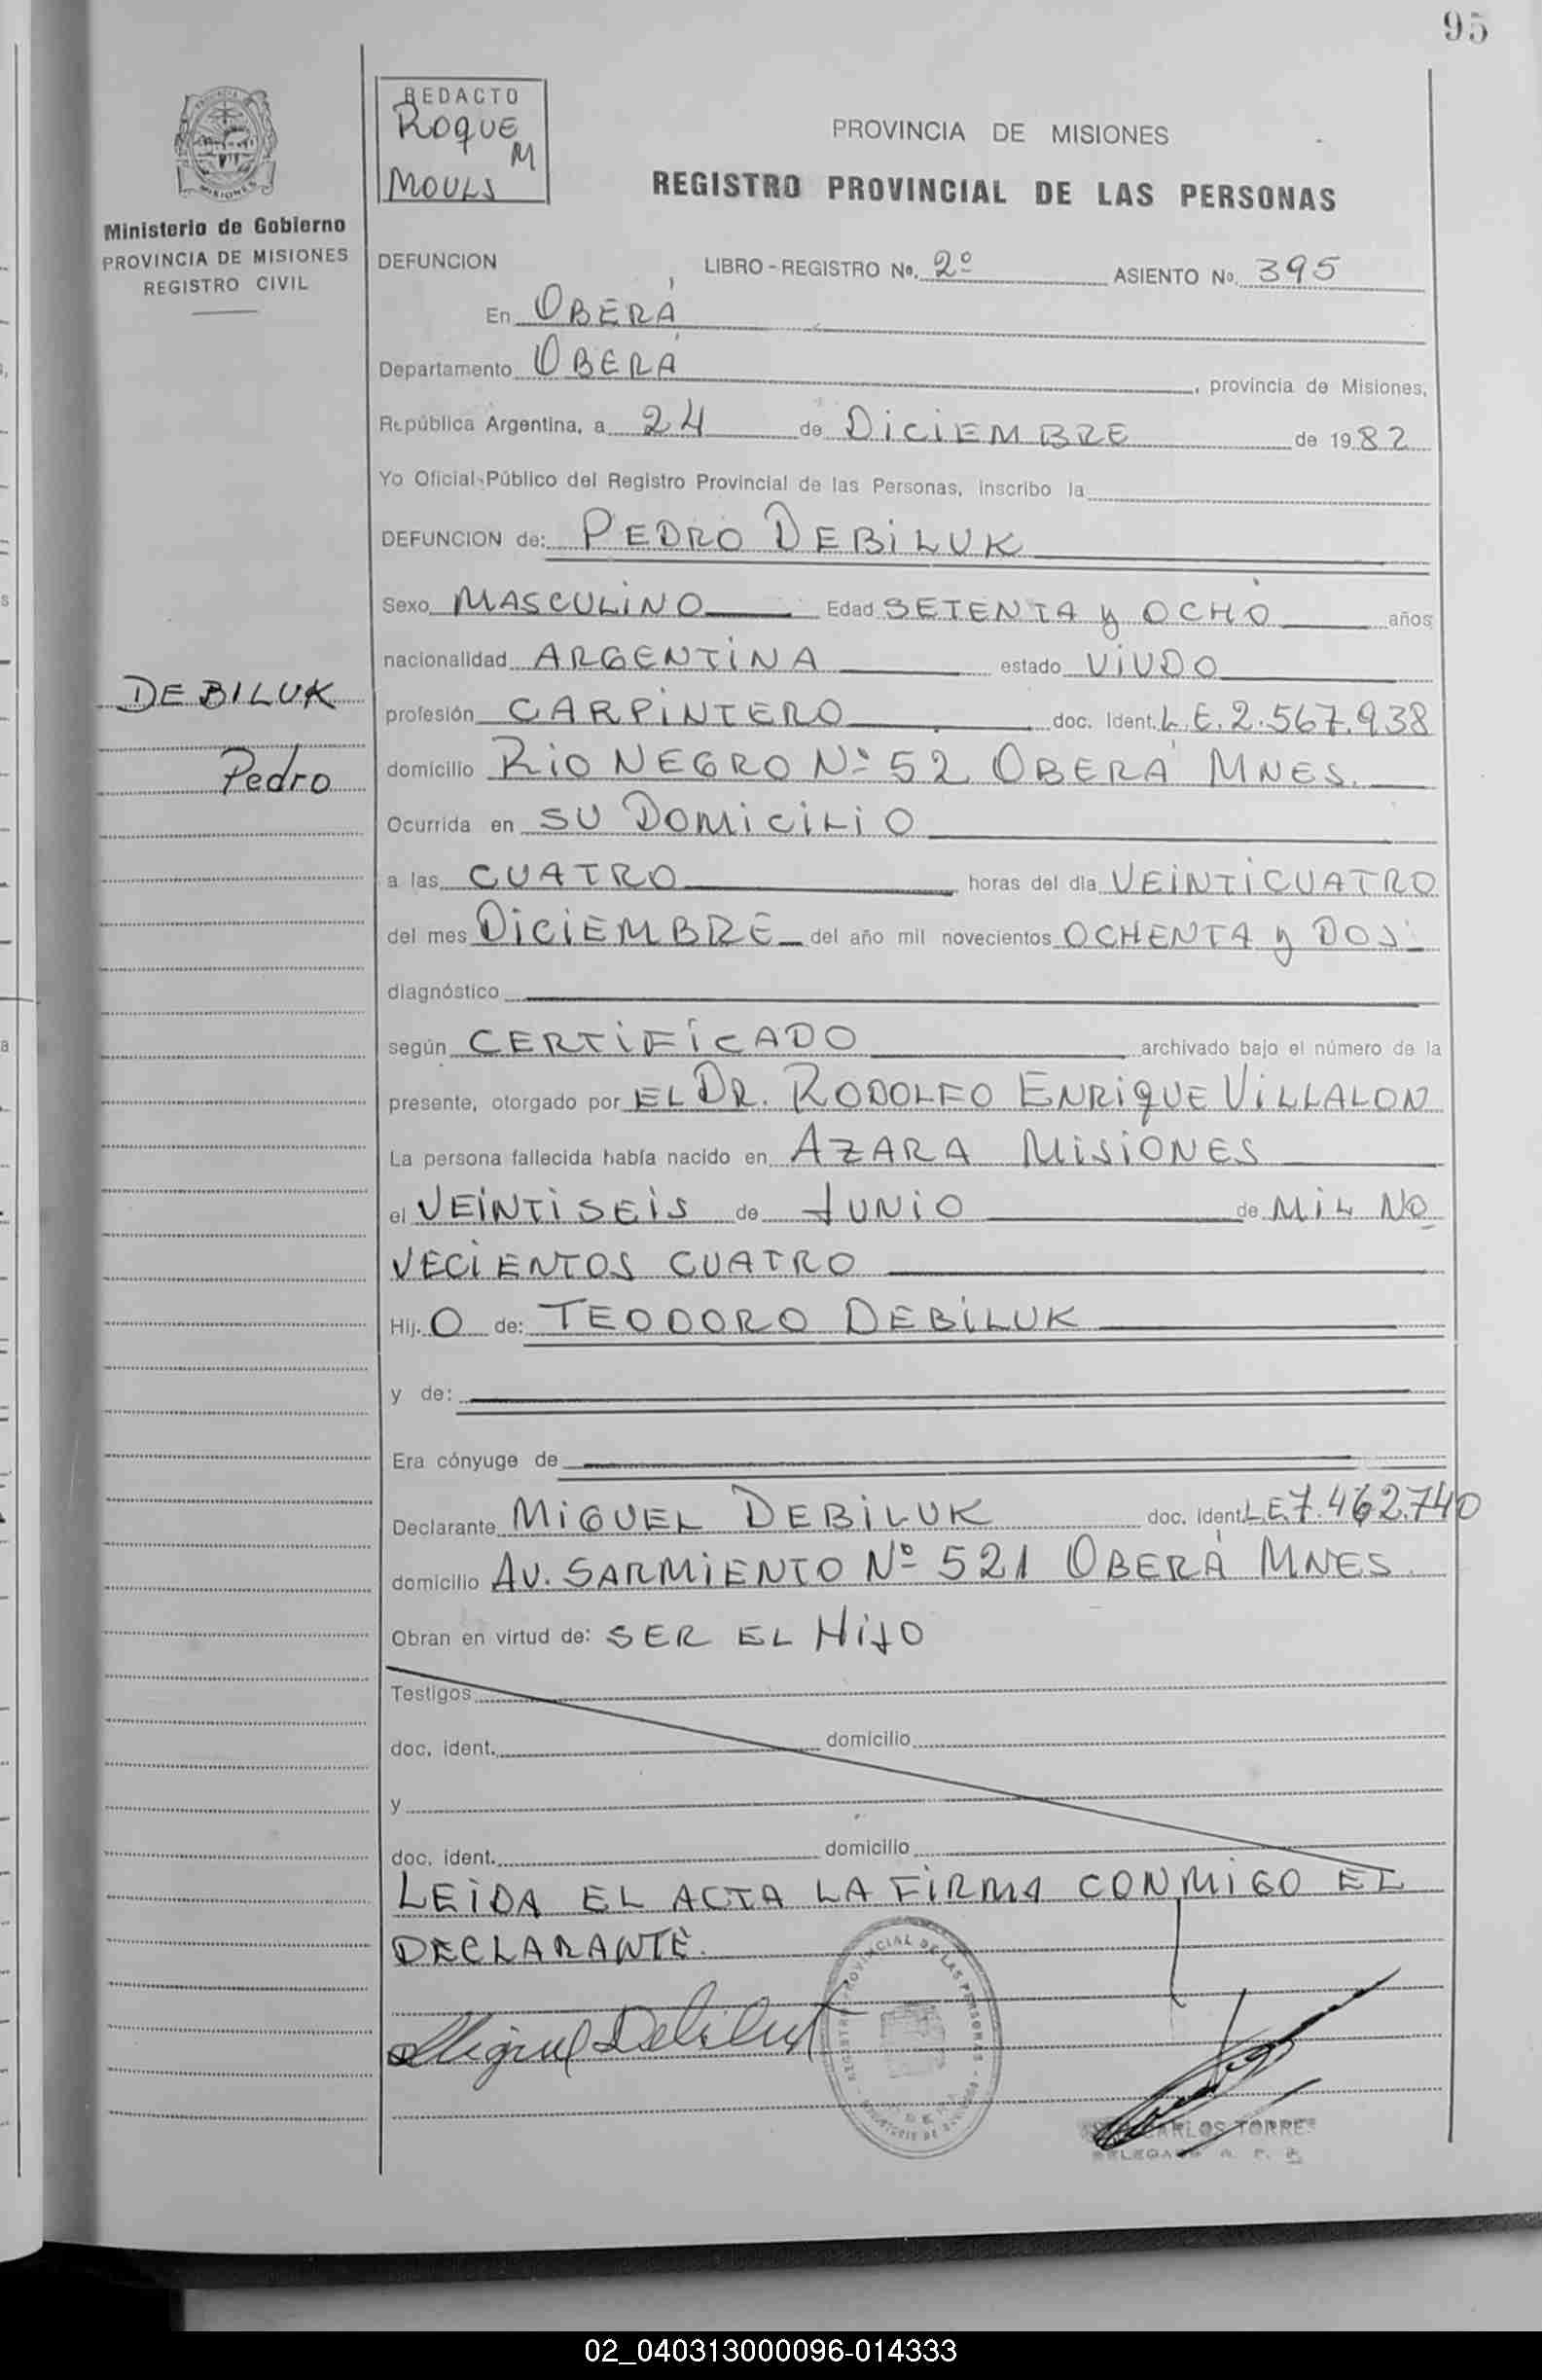 95
REDACTO
ROQUE M
MOULS
PROVINCIA DE MISIONES
REGISTRO PROVINCIAL DE LAS PERSONAS
MISIONES
Ministerio de Gobierno
PROVINCIA DE MISIONES
REGISTRO CIVIL
DEFUNCION LIBRO-REGISTRO No. 2º ASIENTO No. 395
En OBERÁ
Departamento OBERÁ, provincia de Misiones,
República Argentina, a 24 de DICIEMBRE de 1982
Yo Oficial Público del Registro Provincial de las Personas, inscribo la
DEFUNCION de: PEDRO DEBILUK
Sexo MASCULINO Edad SETENTA y OCHO años
nacionalidad ARGENTINA estado VIUDO
DEBILUK
Pedro
profesión CARPINTERO doc. Ident. L.E. 2.567.938
domicilio RIO NEGRO Nº 52 OBERÁ MNES.
Ocurrida en SU DOMICILIO
a las CUATRO horas del dia VEINTICUATRO
del mes DICIEMBRE del año mil novecientos OCHENTA y DOS
diagnóstico
según CERTIFICADO archivado bajo el número de la
presente, otorgado por EL DR. RODOLFO ENRIQUE VILLALON
La persona fallecida había nacido en AZARA MISIONES
el VEINTISEIS de JUNIO de MIL NO
VECIENTOS CUATRO
Hij. O de: TEODORO DEBILUK
y de:
Era cónyuge de
Declarante MIGUEL DEBILUK doc. ident. L.E. 7.462.740
domicilio AV. SARMIENTO Nº 521 OBERÁ MNES.
Obran en virtud de: SER EL HIJO
Testigos
doc. ident. domicilio
y
doc. ident. domicilio
LEIDA EL ACTA LA FIRMA CONMIGO EL
DECLARANTE.
Miguel Debiluk
REGISTRO PROVINCIAL DE LAS PERSONAS
CARLOS TORRES
02_040313000096-014333